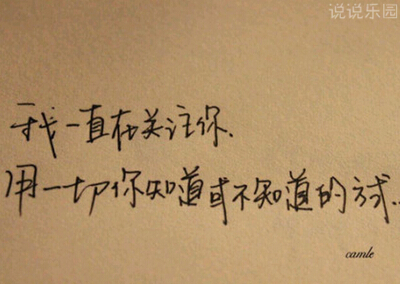 说说乐园
我一直在关注你.
用一切你知道或不知道的方式..
camle